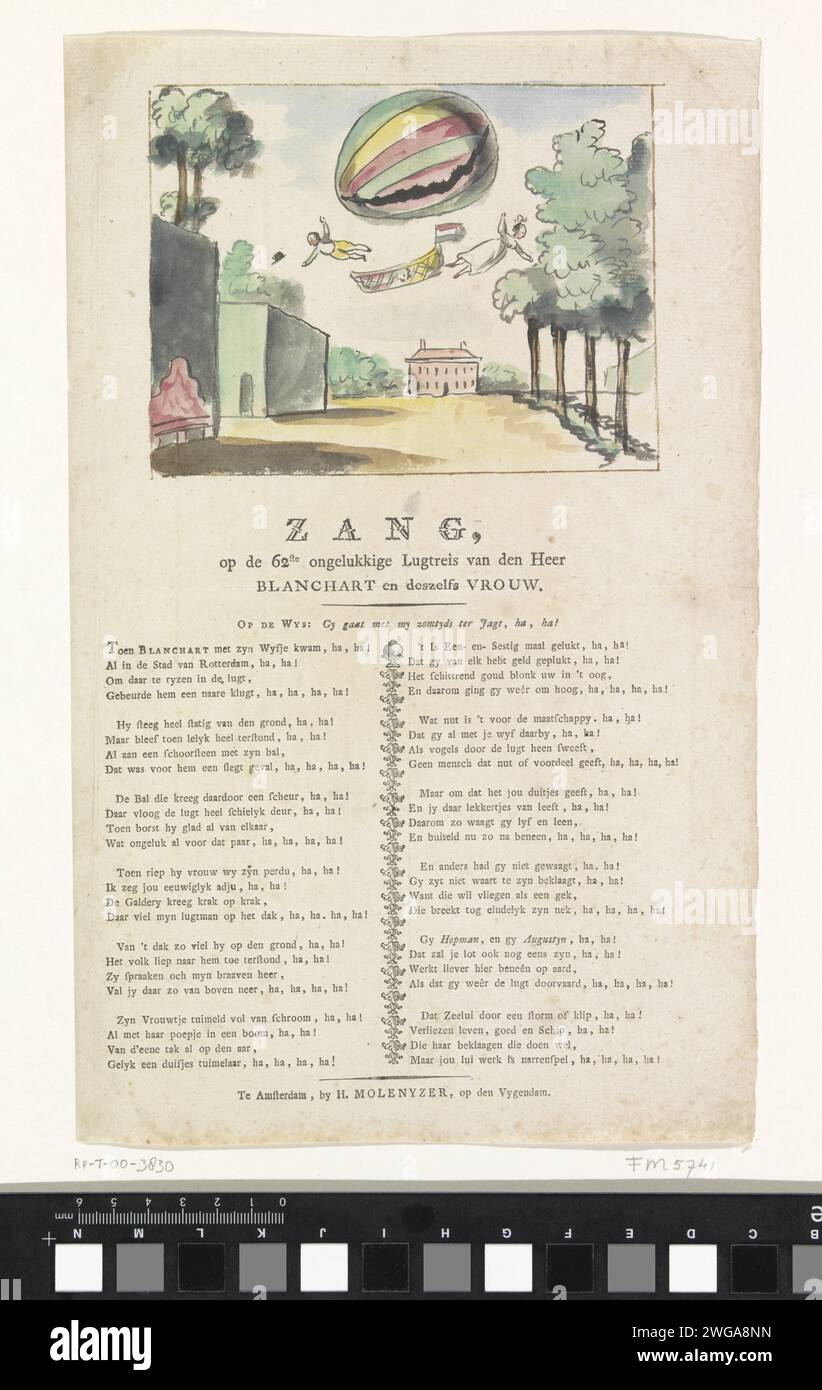 ZANG,
op de 62ste ongelukkige Lugtreis van den Heer
BLANCHART en deszelfs VROUW.
OP DE WYS: Gy gaat met my zomtyds ter Jagt, ha, ha!
Toen BLANCHART met zyn Wyfje kwam, ha, ha!
Al in de Stad van Rotterdam, ha, ha!
Om daar te ryzen in de lugt,
Gebeurde hem een naare klugt, ha, ha, ha, ha!
Hy ſteeg heel ſtatig van den grond, ha, ha!
Maar bleef toen lelyk heel terſtond, ha, ha!
Al aan een ſchoorſteen met zyn bal,
Dat was voor hem een ſlegt geval, ha, ha, ha, ha!
De Bal die kreeg daardoor een ſcheur, ha, ha!
Daar vloog de lugt heel ſchielyk deur, ha, ha!
Toen borst hy glad al van elkaar,
Wat ongeluk al voor dat paar, ha, ha, ha, ha!
Toen riep hy vrouw wy zyn perdu, ha, ha!
Ik zeg jou eeuwiglyk adju, ha, ha!
De Galdery kreeg krak op krak,
Daar viel myn lugtman op het dak, ha, ha. ha, ha!
Van 't dak zo viel hy op den grond, ha, ha!
Het volk liep naar hem toe terſtond, ha, ha!
Zy ſpraaken och myn braaven heer,
Val jy daar zo van boven neer, ha, ha, ha, ha!
Zyn Vrouwtje tuimeld vol van ſchroom, ha, ha!
Al met haar poepje in een boom, ha, ha!
Van d'eene tak al op den aar,
Gelyk een duifjes tuimelaar, ha, ha, ha, ha!
't Is Een- en- Sestig maal gelukt, ha, ha!
Dat gy van elk hebt geld geplukt, ha, ha!
Het ſchittrend goud blonk uw in 't oog,
En daarom ging gy weêr om hoog, ha, ha, ha, ha!
Wat nut is 't voor de maatſchappy. ha, ha!
Dat gy al met je wyf daarby, ha, ha!
Als vogels door de lugt heen ſweeft,
Geen mensch dat nut of voordeel geeft, ha, ha, ha, ha!
Maar om dat het jou duitjes geeft, ha, ha!
En jy daar lekkertjes van leeft, ha, ha!
Daarom zo waagt gy lyf en leen,
En buiteld nu zo na beneen, ha, ha, ha, ha!
En anders had gy niet gewaagt, ha. ha!
Gy zyt niet waart te zyn beklaagt, ha, ha!
Want die wil vliegen als een gek,
Die breekt tog eindelyk zyn nek, ha, ha, ha, ha!
Gy Hopman, en gy Augustyn, ha, ha!
Dat zal je lot ook nog eens zyn, ha, ha!
Werkt liever hier beneên op aard,
Als dat gy weêr de lugt doorvaard, ha, ha, ha, ha!
Dat Zeelui door een ſtorm of klip, ha, ha!
Verliezen leven, goed en Schip, ha, ha!
Die haar beklaagen die doen wel,
Maar jou lui werk is narrenſpel, ha, ha, ha, ha!
Te Amſterdam, by H. MOLENYZER, op den Vygendam.
RP-T-00-3830
FM 5741
mm 6 5 4 3 2 1 0
N M L K J I H G F E D C B
alamy
alamy
alamy
Image ID: 2WGA8NN
www.alamy.com